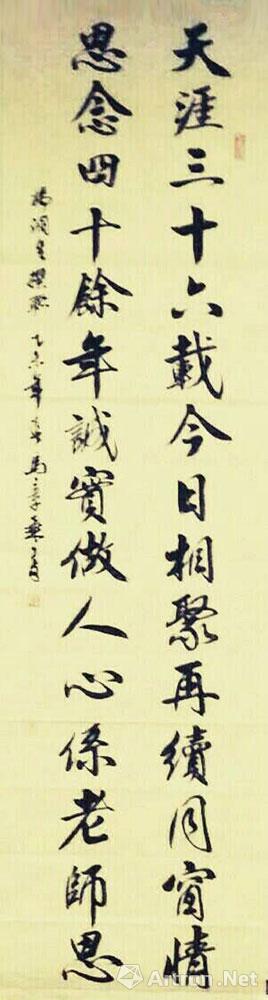 天涯三十六載今日相聚再續同窗情
思念四十餘年誠實做人心係老師恩
撰聯 乙未年
Artron.Net